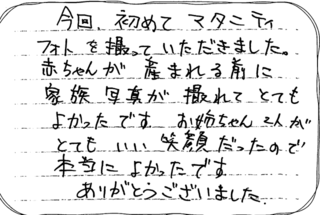 今回、初めて マタニティ
フォト を撮って いただきました。
赤ちゃんが 産まれる前に
家族 写真が 撮れて とても
よかったです お姉ちゃん 2人が
とても いい 笑顔 だったので
本当に よかったです
ありがとうございました